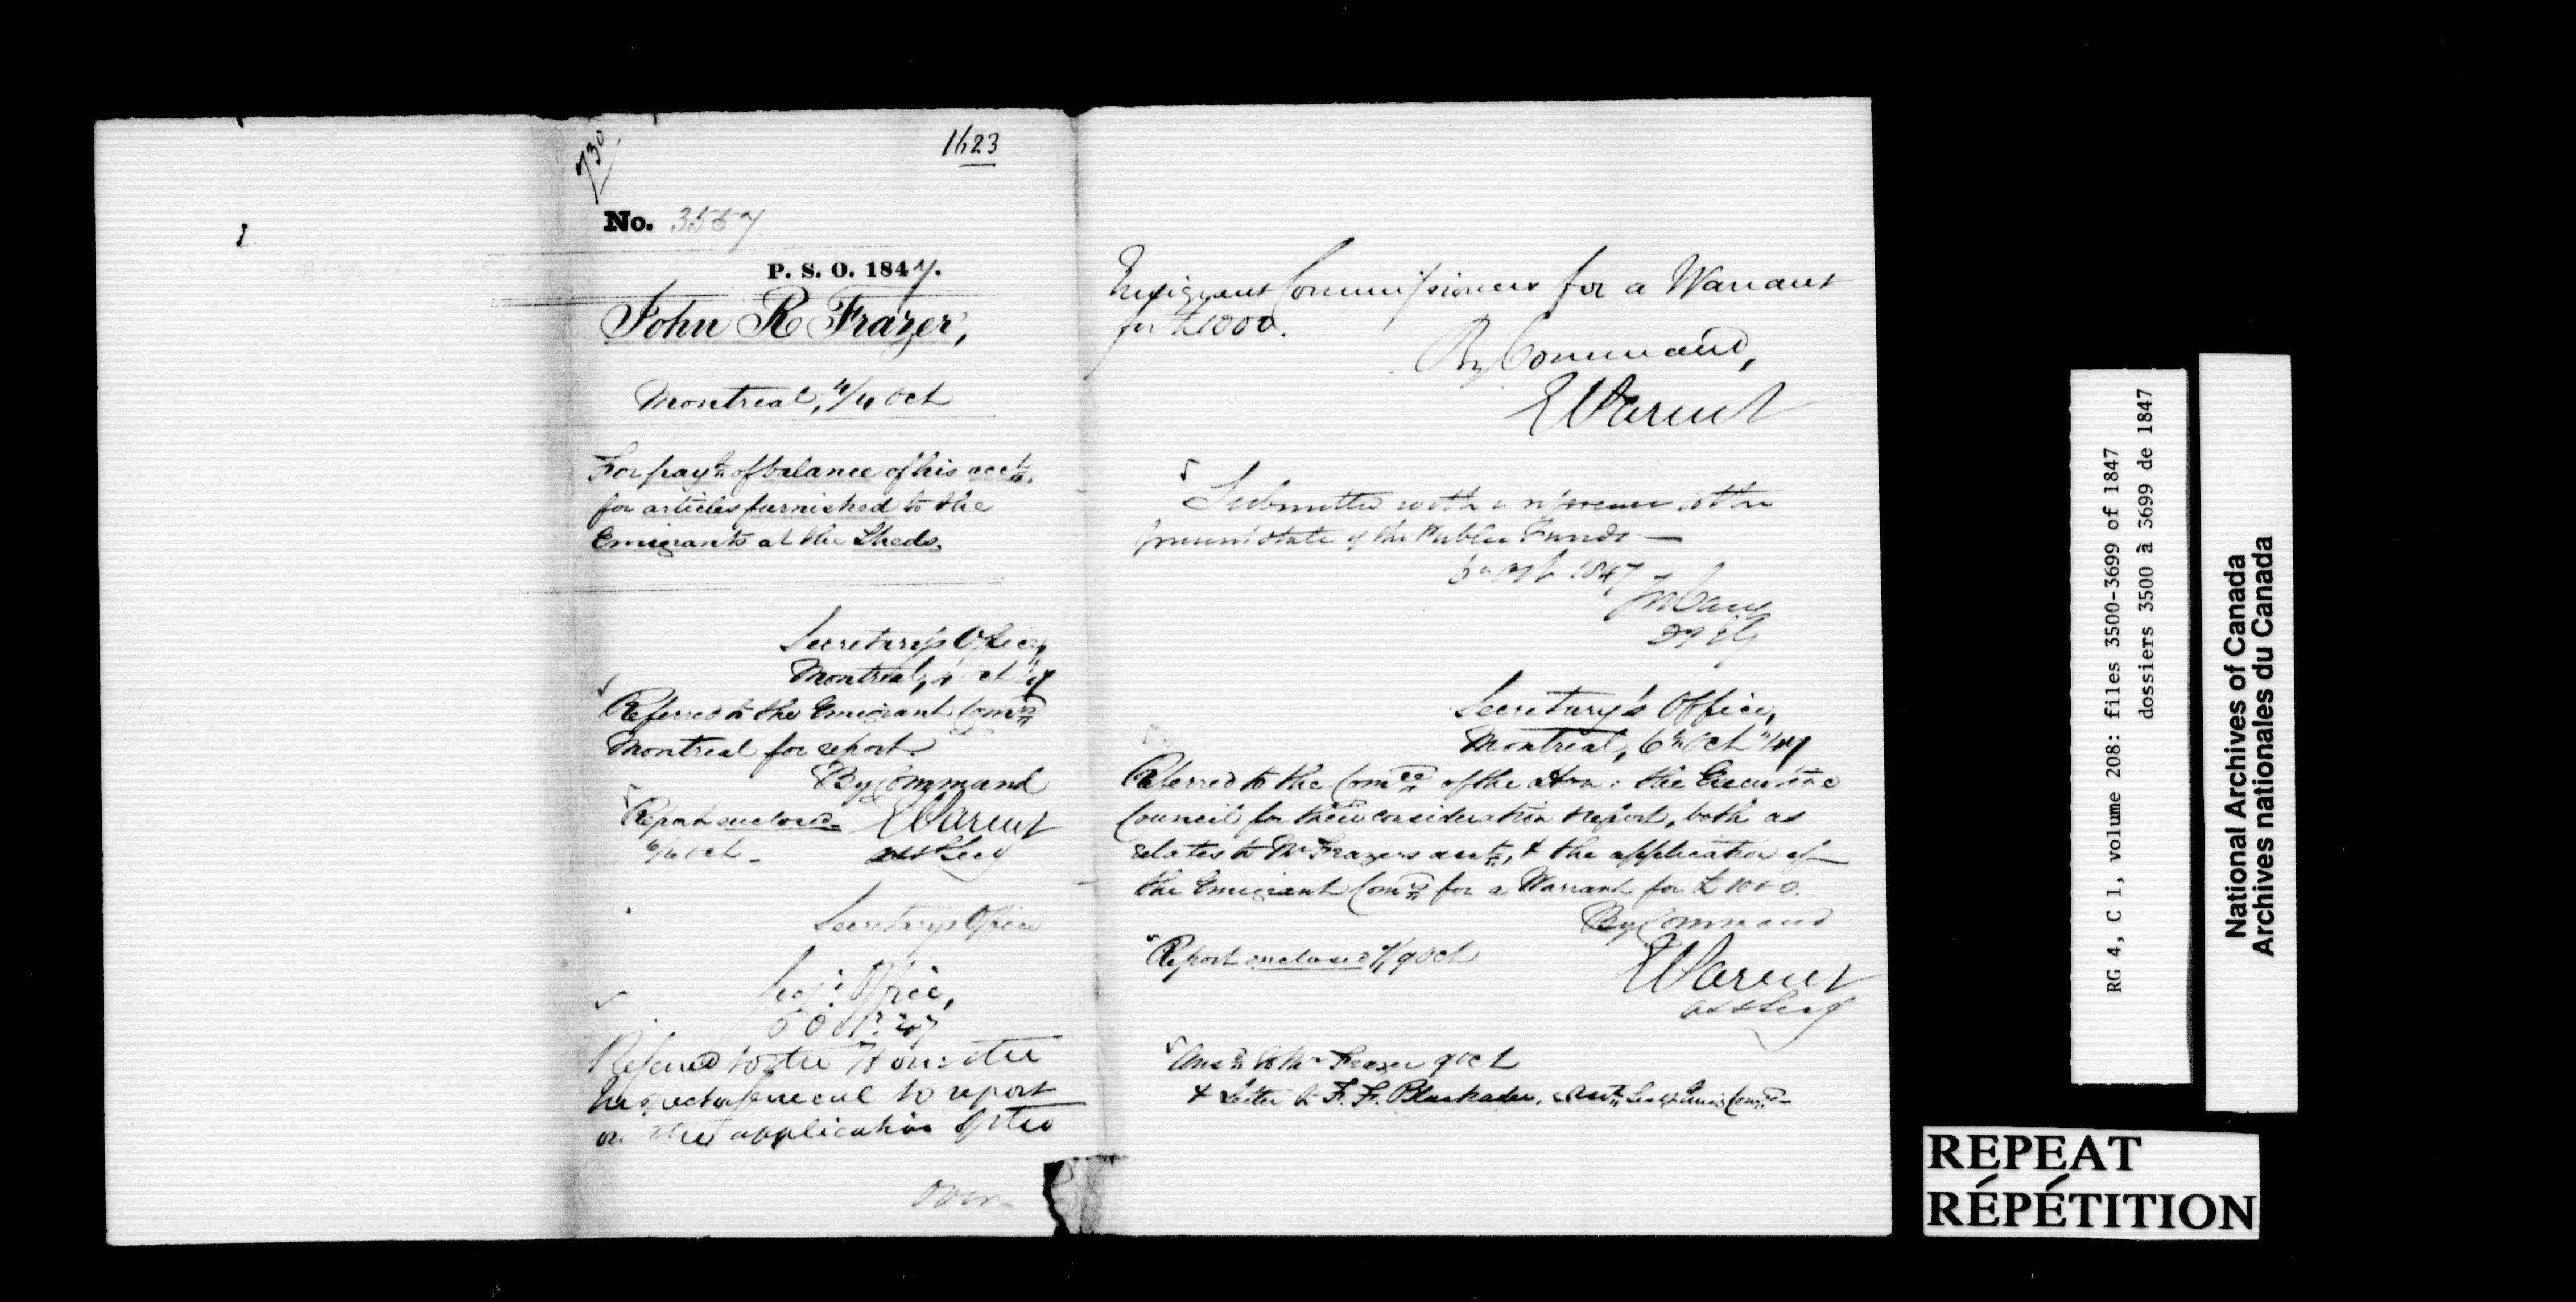 730
1623
No. 3567.
P. S. O. 1847.
John R Frazer,
Montreal, 4/4 Oct
For payt. of balance of his acct.
for articles furnished to the
Emigrants at the Sheds.
Secretary's Office,
Montreal, 4 Oct 47
Referred to the Emigrant Comrs
Montreal for report.
By Command
Report enclosed
E Parent
6/6 Oct -
Asst Secy
Secretarys Office
Secy's Office,
6 Oct. 47
Referred to the Hon: the
Inspector General to report
on the application of the
over-
Emigrant Commissioners for a Warrant
for £1000.
By Command,
E Parent
Submitted with a reference to the
present state of the Public Funds —
6th Oct 1847
Jos Cary
D I G
Secretary's Office,
Montreal, 6th Oct 47
Referred to the Comee of the Hon: the Executive
Council for their consideration & report, both as
relates to Mr Frazers acct, & the application of
the Emigrant Comrs for a Warrant for £1000.
By Command
Report enclosed 9/9 Oct
E Parent
Asst Secy
Ansd to Mr Frazer 9 Oct
& Letter to F. F. Blackader, Emig Comrs
RG 4, C 1, volume 208: files 3500-3699 of 1847
dossiers 3500 à 3699 de 1847
National Archives of Canada
Archives nationales du Canada
REPEAT
RÉPÉTITION